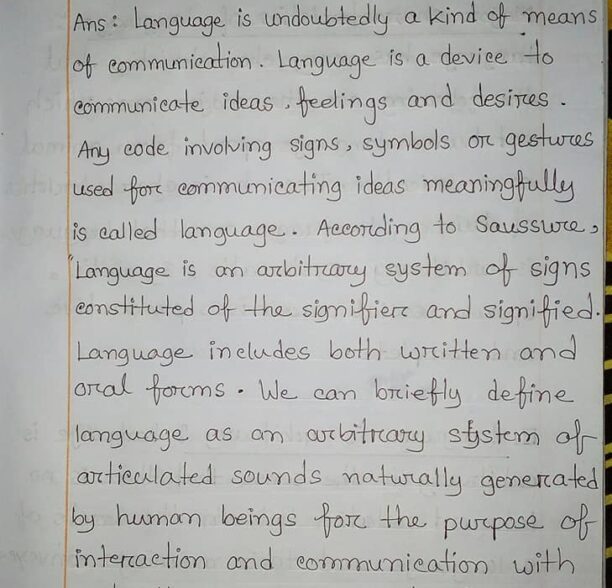 Ans: Language is undoubtedly a kind of means
of communication. Language is a device to
communicate ideas, feelings and desires.
Any code involving signs, symbols or gestures
used for communicating ideas meaningfully
is called language. According to Saussure,
"Language is an arbitrary system of signs
constituted of the signifier and signified.
Language includes both written and
oral forms. We can briefly define
language as an arbitrary system of
articulated sounds naturally generated
by human beings for the purpose of
interaction and communication with